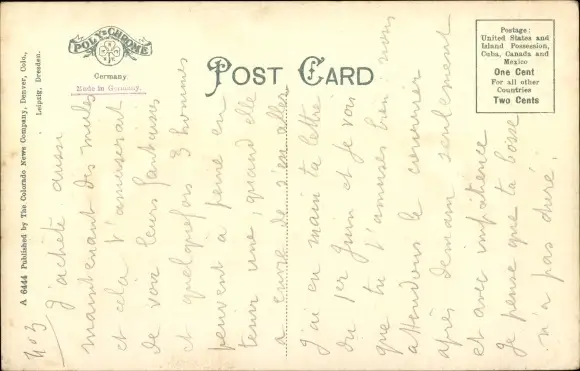 POLY-CHROME
Germany
Made in Germany.
POST CARD
Postage:
United States and
Island Possession,
Cuba, Canada and
Mexico
One Cent
For all other
Countries
Two Cents
A 6444 Published by The Colorado News Company, Denver, Colo.,
Leipzig, Dresden.
No 3
J'achète aussi
maintenant des mules
et cela t'amuserait
de voir leurs fantaisies
et quelquefois 3 hommes
peuvent à peine en
tenir une, quand elle
a envie de s'en aller
J'ai en main ta lettre
du 1er Juin et je vois
que tu t'amuses bien. nous
attendons le courrier
après demain seulement
et avec impatience
Je pense que ta bosse
n'a pas duré.